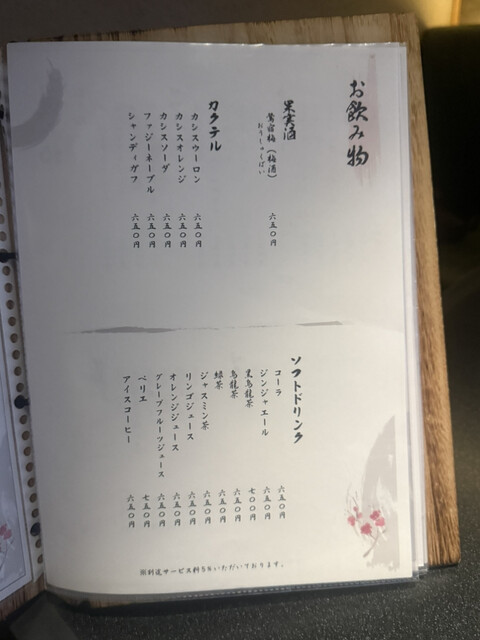 お飲み物
果実酒
鶯宿梅（梅酒） 六五〇円
おうしゅくばい
カクテル
カシスウーロン 六五〇円
カシスオレンジ 六五〇円
カシスソーダ 六五〇円
ファジーネーブル 六五〇円
シャンディガフ 六五〇円
ソフトドリンク
コーラ 六五〇円
ジンジャエール 六五〇円
黒烏龍茶 七〇〇円
烏龍茶 六五〇円
緑茶 六五〇円
ジャスミン茶 六五〇円
リンゴジュース 六五〇円
オレンジジュース 六五〇円
グレープフルーツジュース 六五〇円
ペリエ 七五〇円
アイスコーヒー 六五〇円
※別途サービス料5%いただいております。